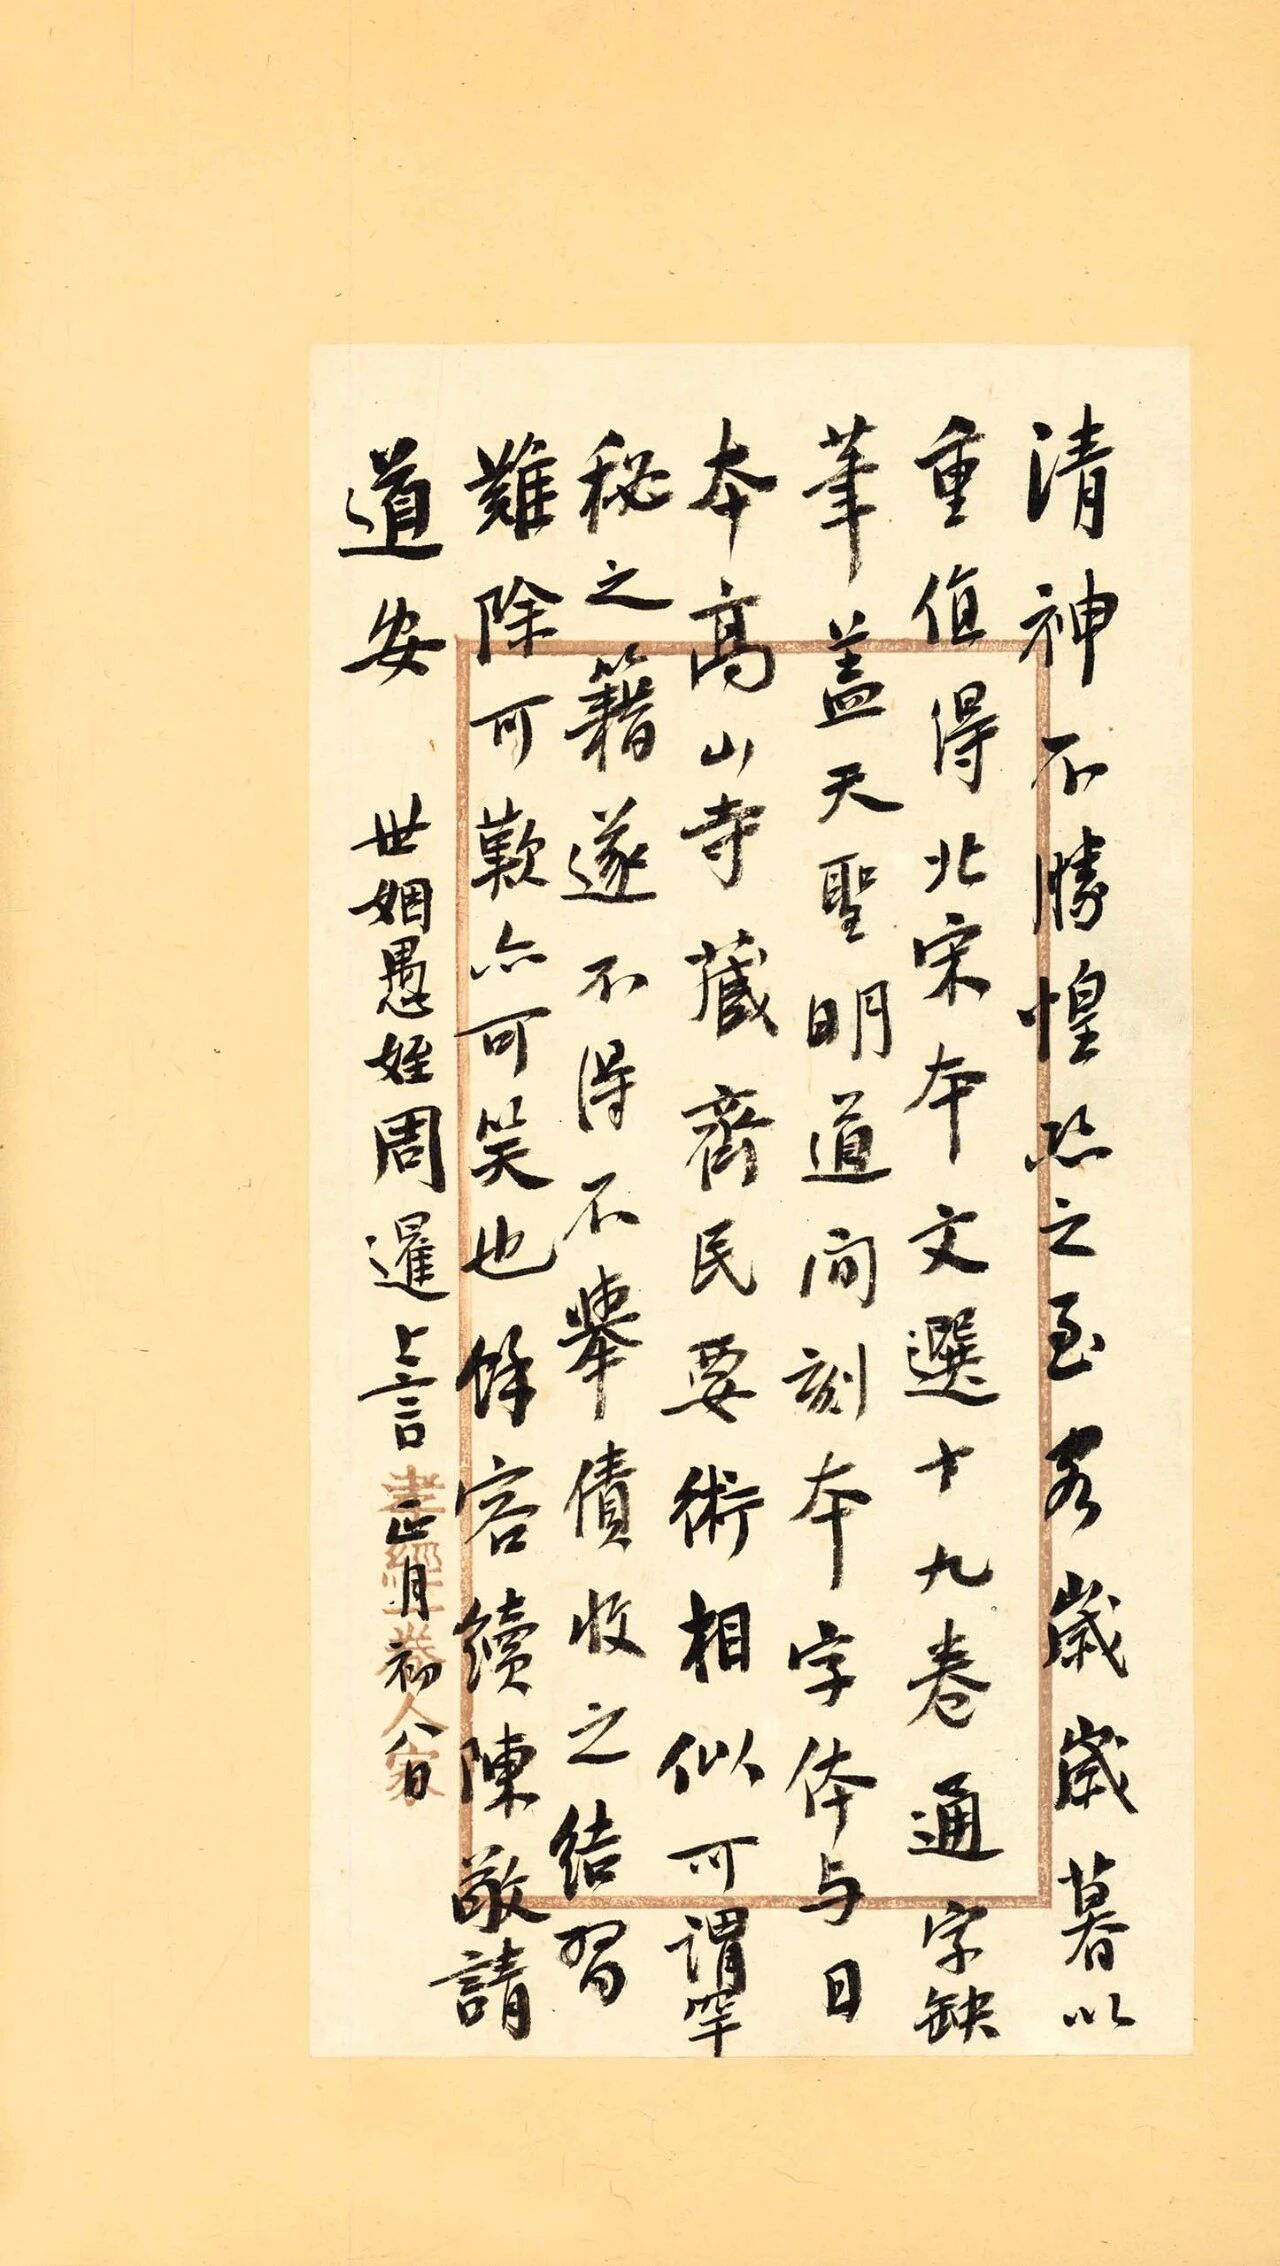 清神不勝惶恐之至客歲歲暮以
重值得北宋本文選十九卷通字缺
筆蓋天聖明道间刻本字体与日
本高山寺藏齊民要術相似可謂罕
秘之籍遂不得不舉債收之結習
難除可歎亦可笑也餘容續陳敬請
道安
世姻愚姪周暹上言 正月初八日
書經上卷人家